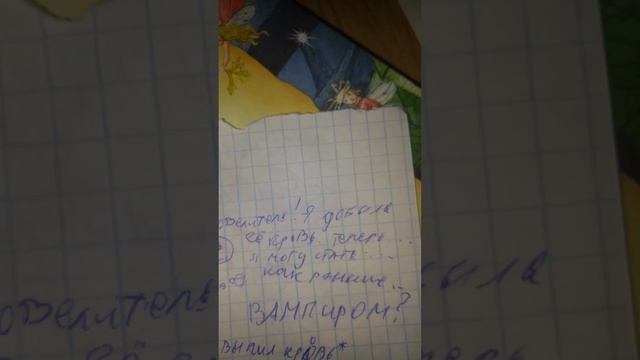 овелитель! Я добыла
её кровь теперь...
я могу стать...
как раньше...
ВАМПИРОМ?
выпил кровь*